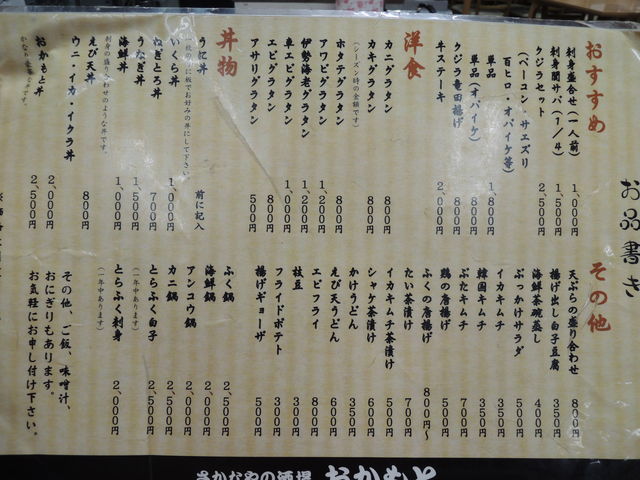 お品書き
おすすめ
刺身盛合せ(一人前) 1,000円
刺身関サバ(1/4) 1,500円
クジラセット 2,500円
(ベーコン・サエズリ
百ヒロ・オバイケ等)
単品 1,800円
単品(オバイケ) 800円
クジラ竜田揚げ 800円
牛ステーキ 2,000円
洋食
カニグラタン 800円
カキグラタン 800円
(シーズン時の金額です)
ホタテグラタン 800円
アワビグラタン 1,200円
伊勢海老グラタン 1,200円
車エビグラタン 1,000円
エビグラタン 800円
アサリグラタン 500円
丼物
うに丼 前に記入
いくら丼 1,000円
ねぎとろ丼 700円
うなぎ丼 1,500円
海鮮丼 1,000円
刺身の盛り合わせのような丼です。
えび天丼 800円
ウニ・イカ・イクラ丼 2,000円
おかもと丼 2,500円
その他
天ぷらの盛り合わせ 800円
揚げ出し白子豆腐 350円
海鮮茶碗蒸し 400円
ぶっかけサラダ 500円
イカキムチ 350円
韓国キムチ 350円
ぶたキムチ 700円
鶏の唐揚げ 500円
ふくの唐揚げ 800円〜
たい茶漬け 700円
イカキムチ茶漬け 500円
シャケ茶漬け 600円
かけうどん 350円
えび天うどん 600円
エビフライ 800円
枝豆 300円
フライドポテト 300円
揚げギョーザ 500円
ふく鍋 2,500円
海鮮鍋 2,000円
アンコウ鍋 2,000円
カニ鍋 2,500円
とらふく白子 2,500円
(一年中あります)
とらふく刺身 2,000円
(一年中あります)
その他、ご飯、味噌汁、
おにぎりもあります。
お気軽にお申し付け下さい。
さかなやの酒場 おかもと